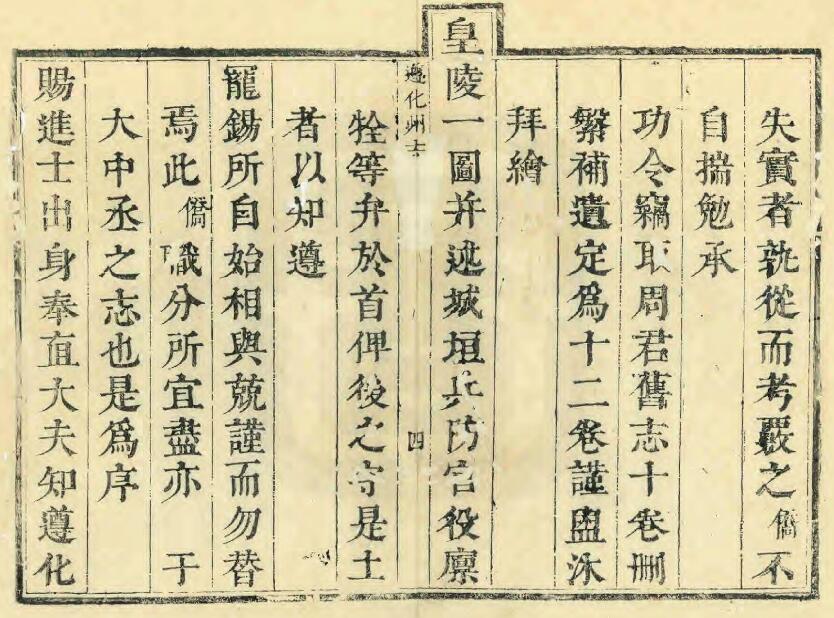 失實者孰從而考覈之僑不
自揣勉承
功令竊取周君舊志十卷刪
繁補遺定爲十二卷謹盥沐
拜繪
皇陵一圖并述城垣兵防官役廩
遵化州志 四
牷等弁於首俾後之守是土
者以知遵
寵錫所自始相與兢謹而勿替
焉此僑職分所宜盡亦于
大中丞之志也是爲序
賜進士出身奉直大夫知遵化